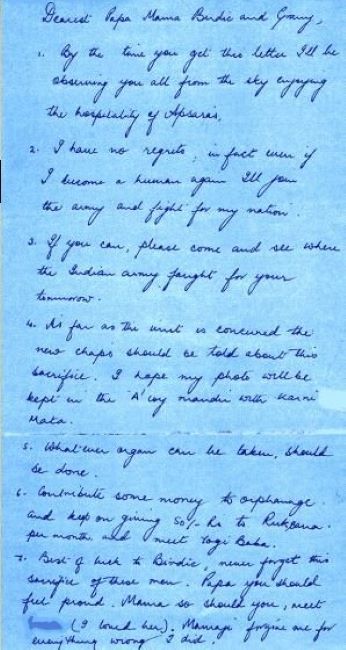 Dearest Papa Mama Birdie and Granny,
1. By the time you get this letter I'll be
observing you all from the sky enjoying
the hospitality of Apsaras.
2. I have no regrets, in fact even if
I become a human again I'll join
the army and fight for my nation.
3. If you can, please come and see where
the Indian army fought for your
tommorow.
4. As far as the unit is concured the
new chaps should be told about this
sacrifice. I hope my photo will be
kept in the 'A' coy mandir with Karni
Mata.
5. Whatever organ can be taken, should
be done.
6. Contribute some money to orphanage
and kept on giving 50/- Rs to Rukhsana
per month and meet Yogi Baba.
7. Best of luck to Birdie, never forget this
sacrifice of these men. Papa you should
feel proud. Mama so should you, meet
(I loved her). Mamaji forgive me for
everything wrong I did.